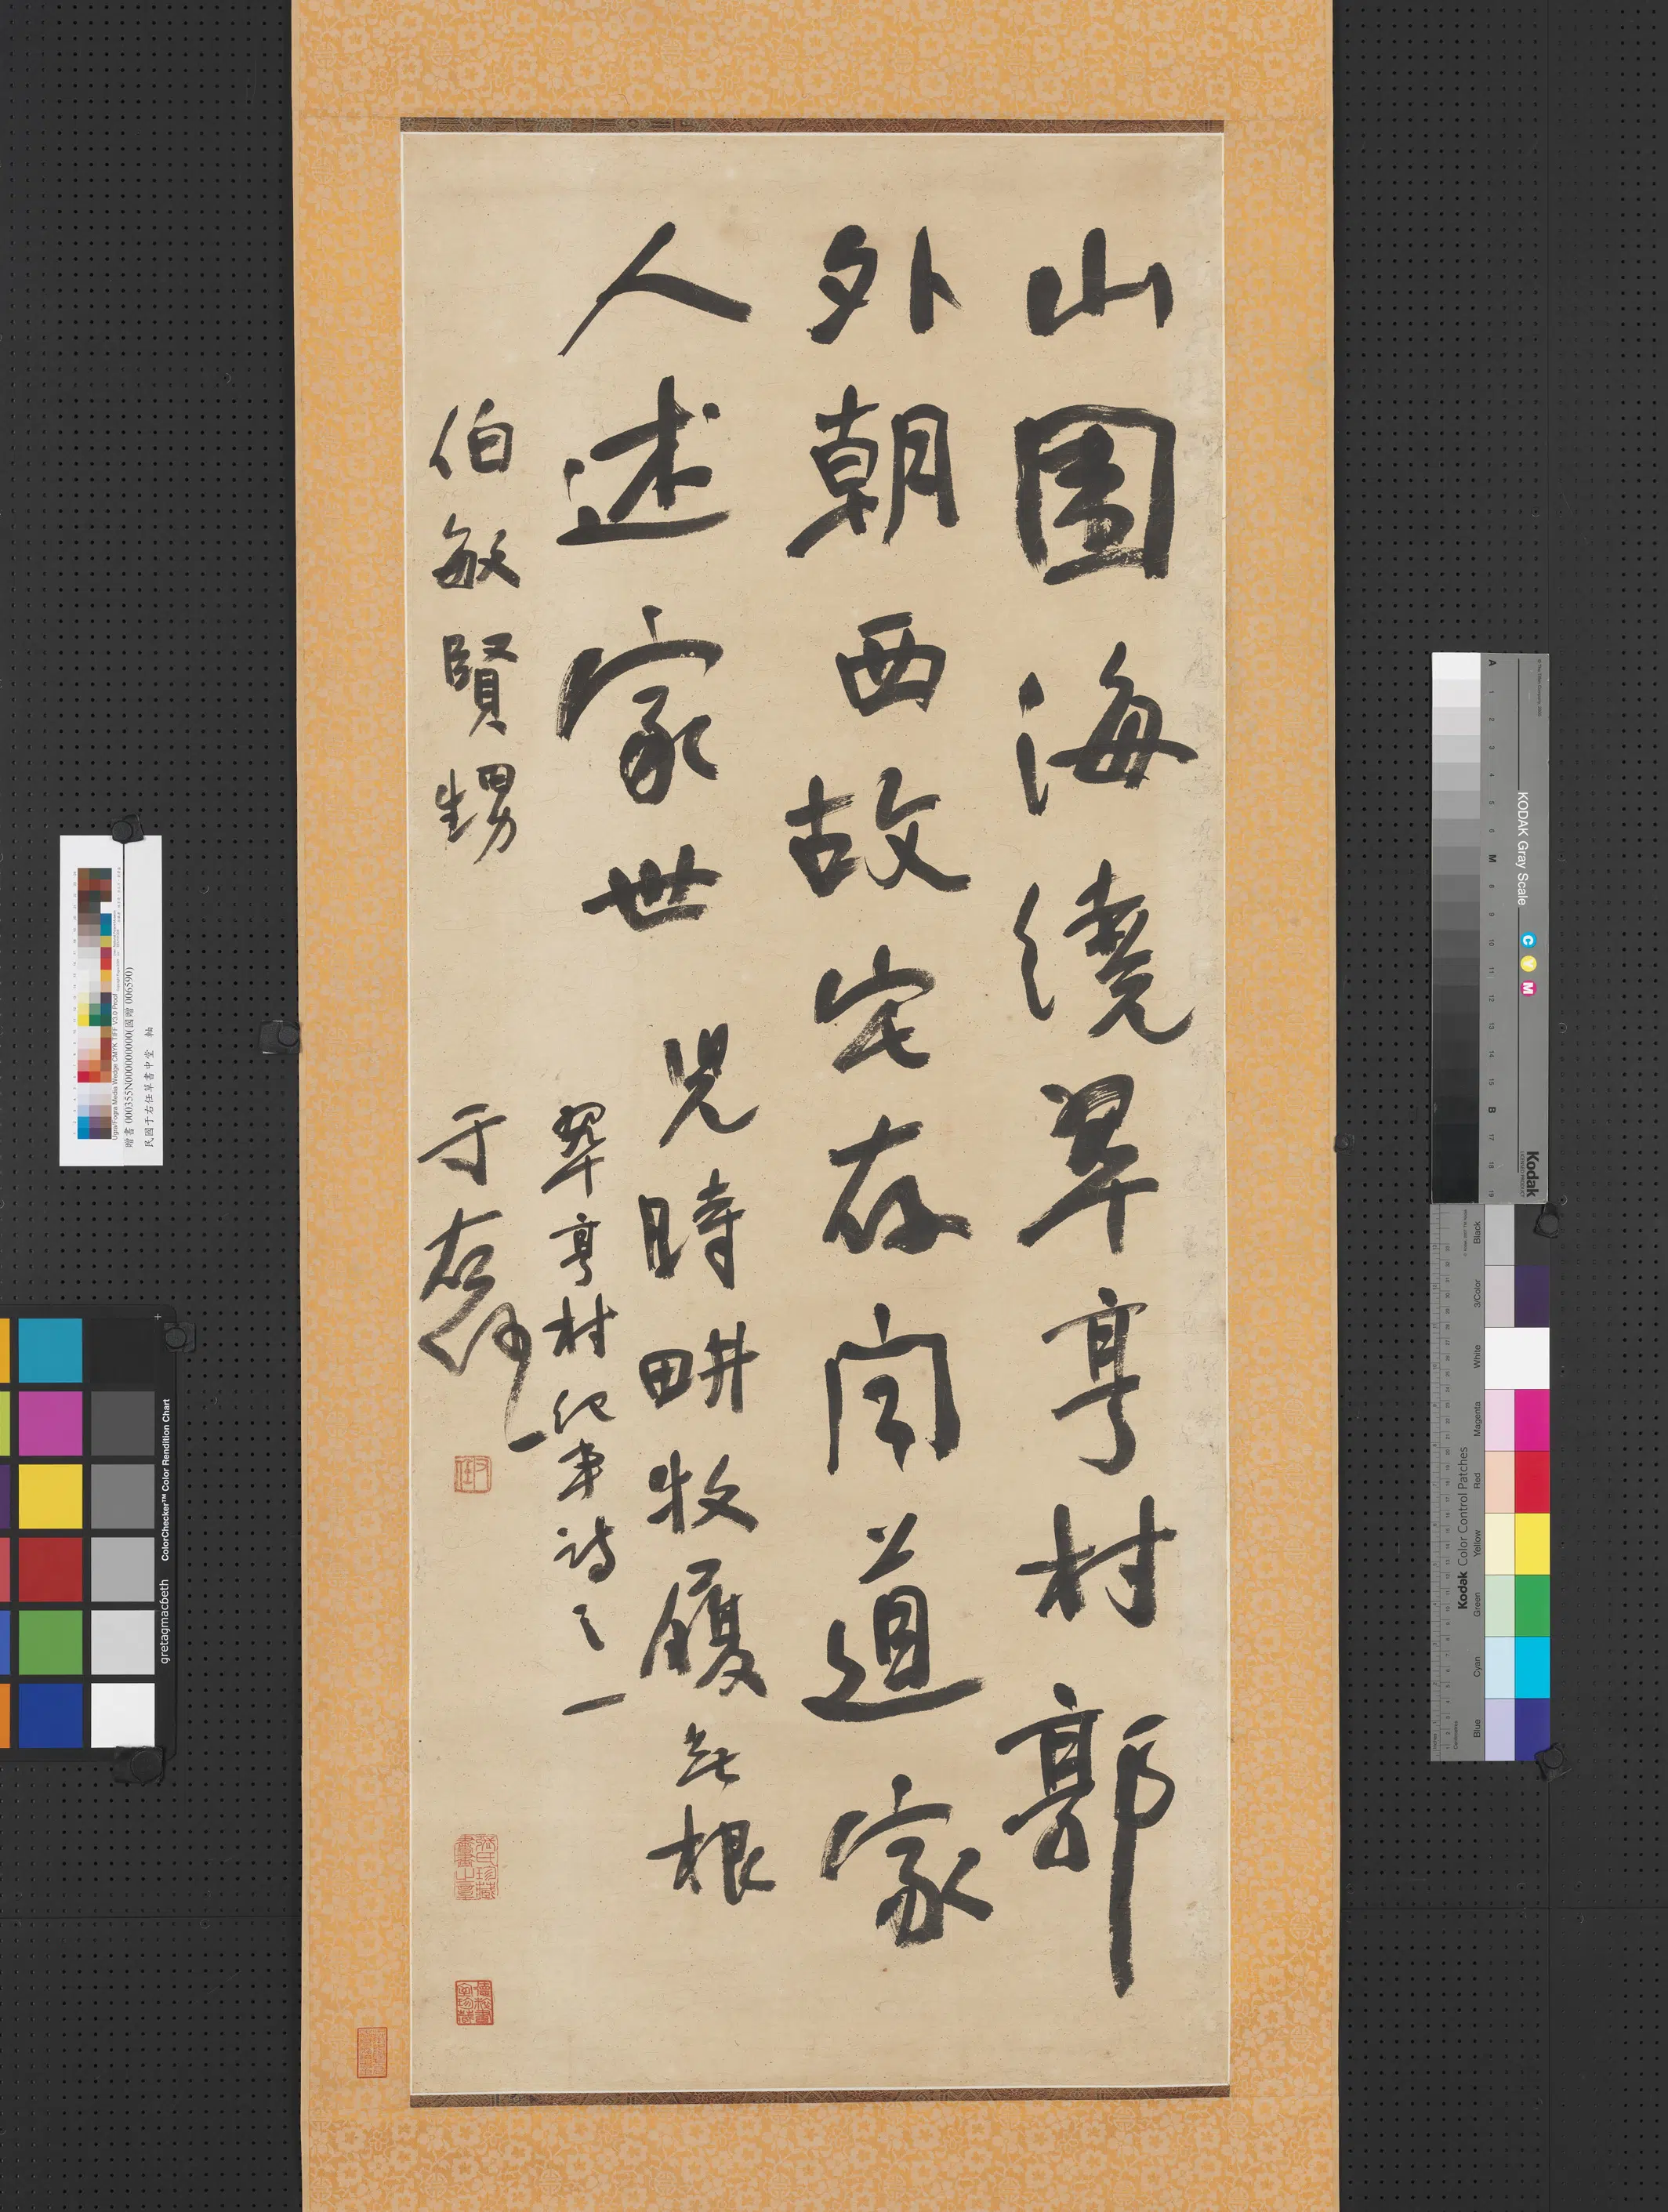 山圍海繞翠亨村郭
外朝西故宅存聞道家
人述家世
兒時畊牧履無根
翠亨村紀事詩之一
伯敏賢甥
于右任
右任
張氏珍藏書畫之章
贈書 000355N000000000(國贈 006590)
民國于右任草書中堂 軸
Ugra/Fogra Media Wedge CMYK TIFF V3.0 Proof
gretagmacbeth ColorChecker™ Color Rendition Chart
KODAK Gray Scale
C Y M
Kodak
LICENSED PRODUCT
A 1 2 3 4 5 6 M 8 9 10 11 12 13 14 15 B 17 18 19
Kodak Color Control Patches
Blue Cyan Green Yellow Red Magenta White 3/Color Black